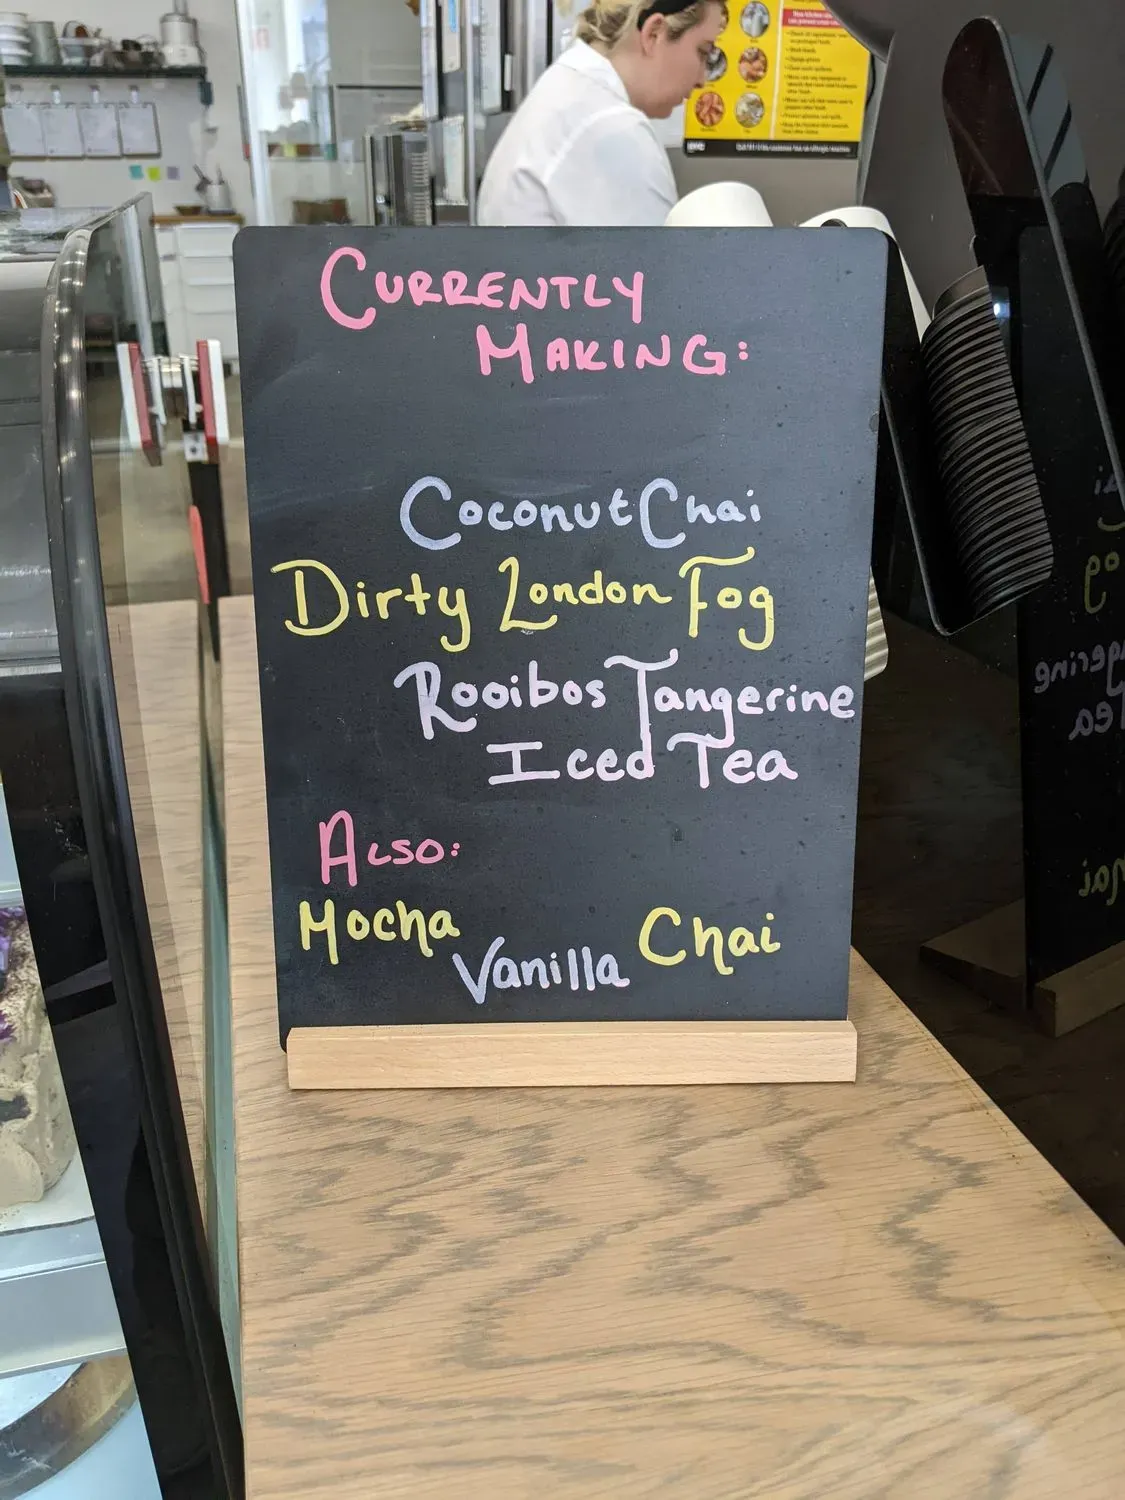 CURRENTLY
MAKING:
Coconut Chai
Dirty London Fog
Rooibos Tangerine
Iced Tea
ALSO:
Mocha
Vanilla
Chai